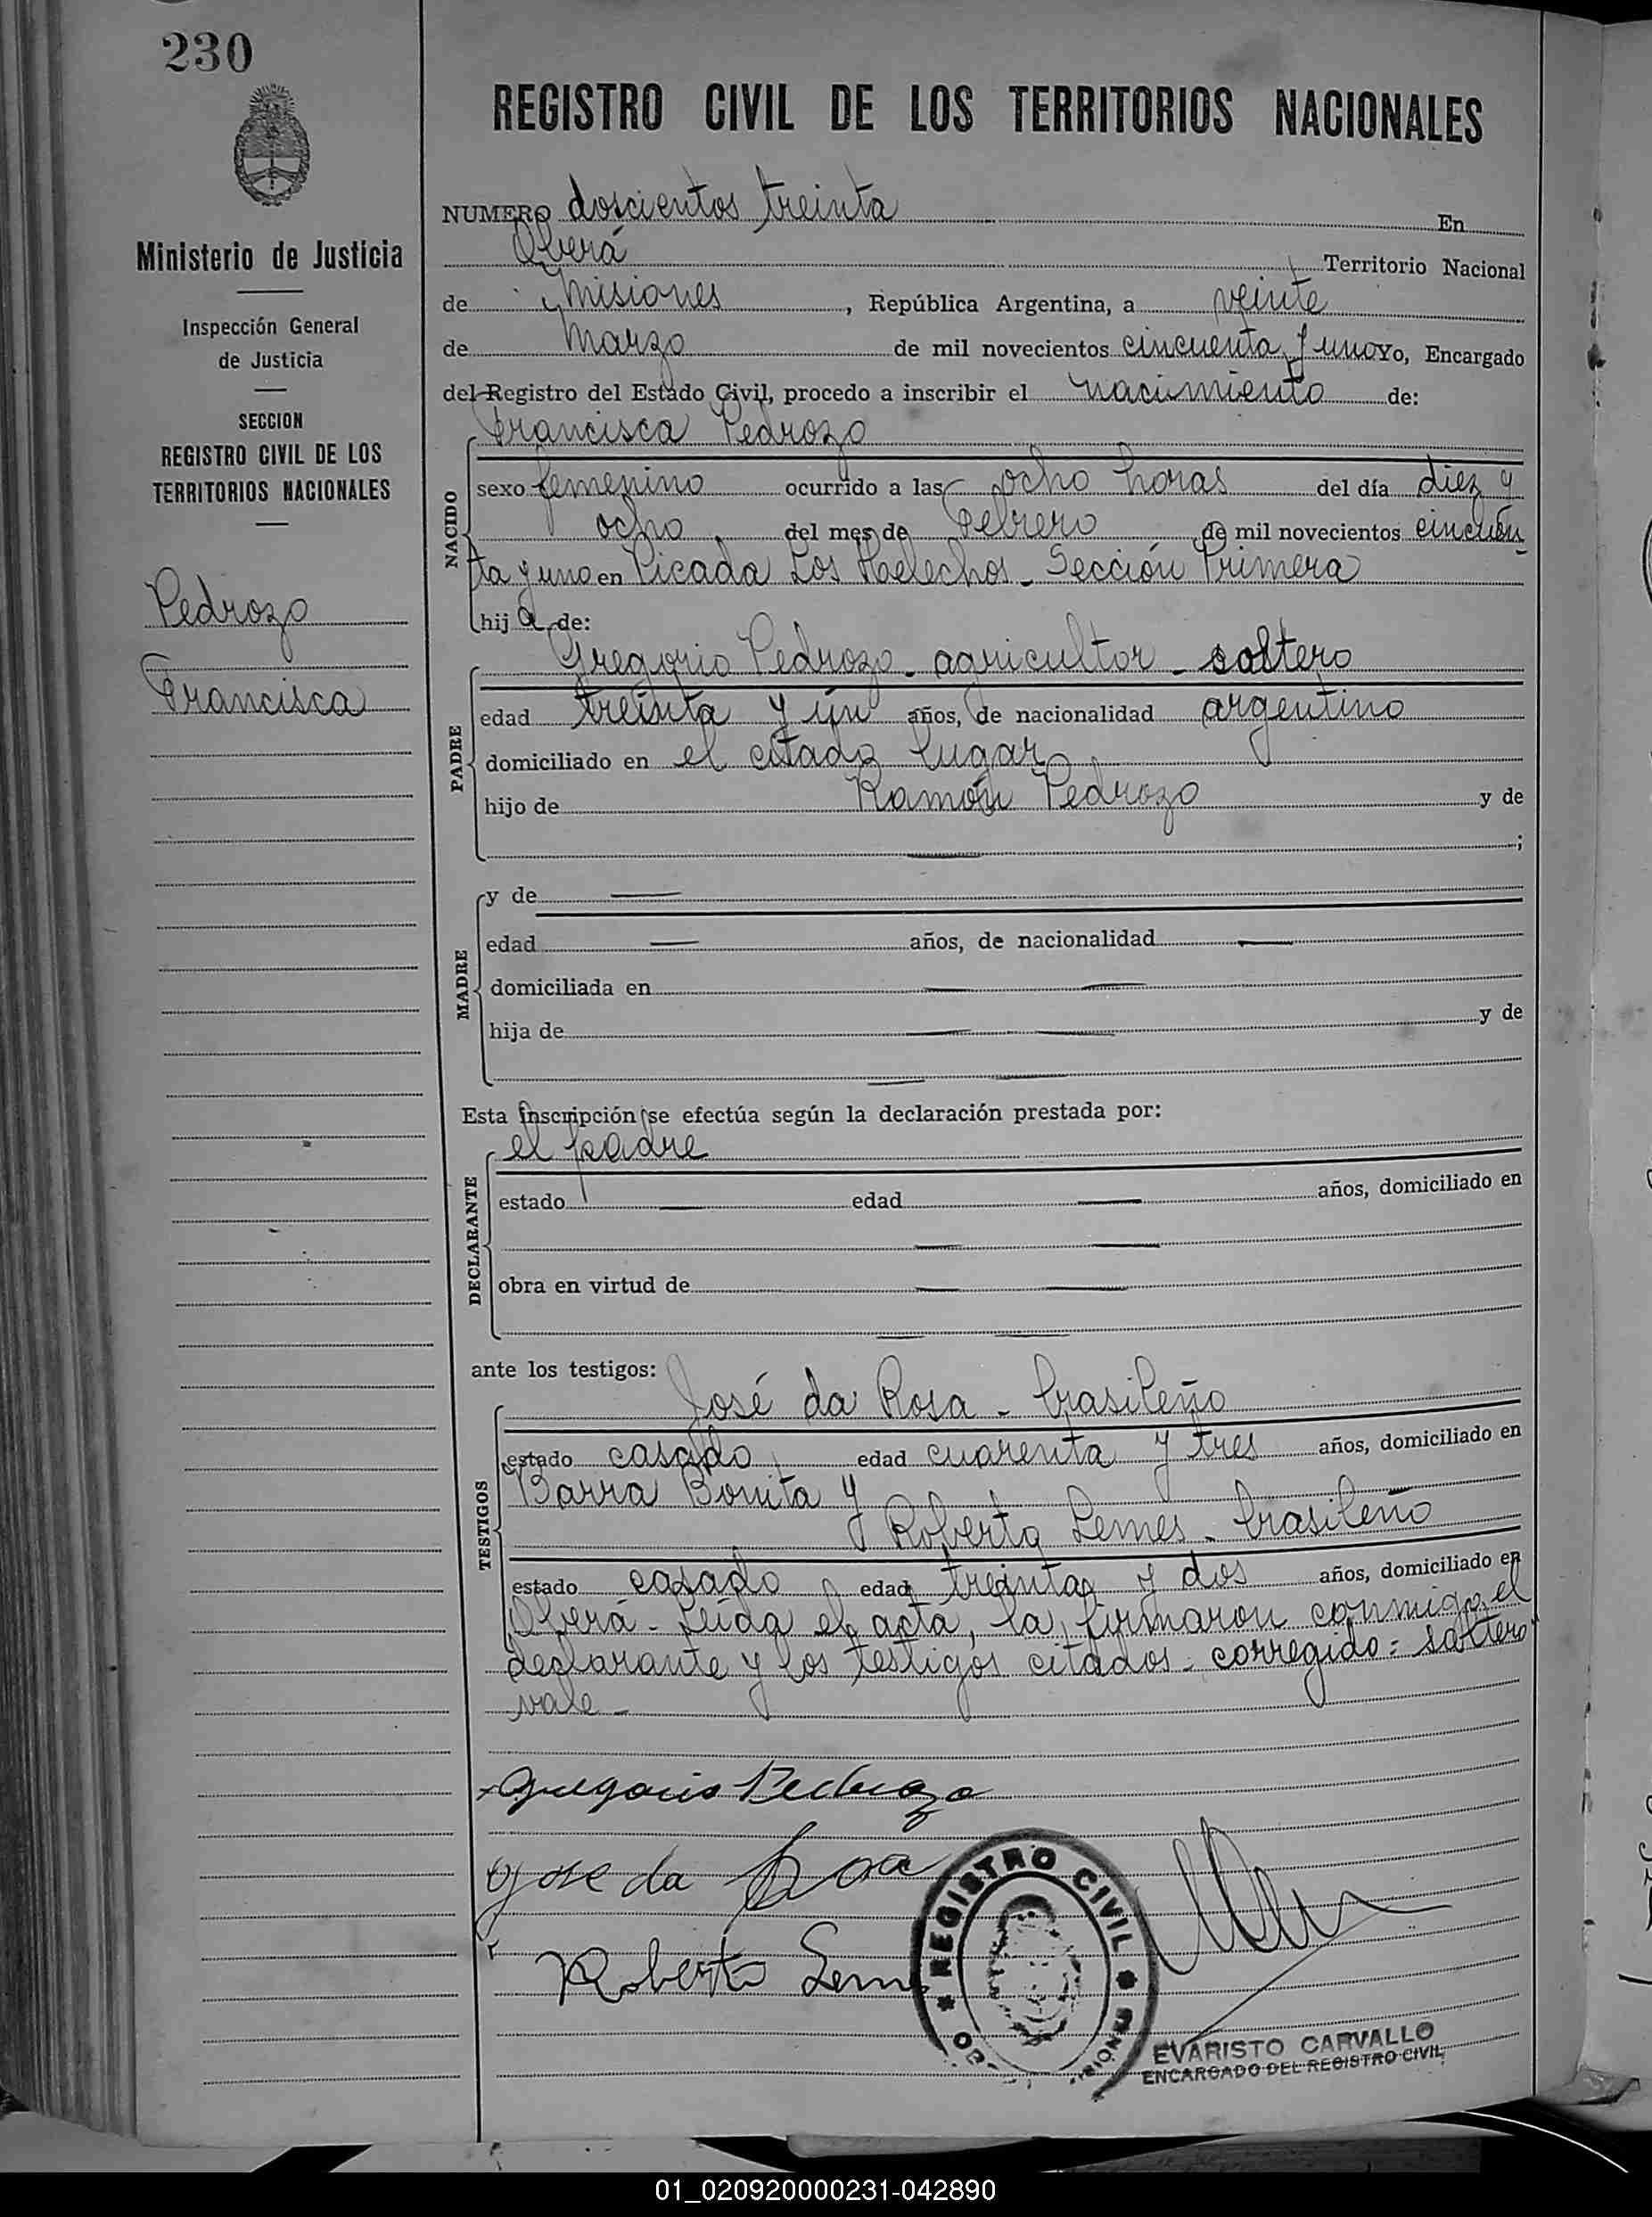 230
Ministerio de Justicia
Inspección General
de Justicia
SECCION
REGISTRO CIVIL DE LOS
TERRITORIOS NACIONALES
Pedrozo
Francisca
REGISTRO CIVIL DE LOS TERRITORIOS NACIONALES
NUMERO doscientos treinta En
Oberá Territorio Nacional
de Misiones, República Argentina, a veinte
de Marzo de mil novecientos cincuenta y uno Yo, Encargado
del Registro del Estado Civil, procedo a inscribir el nacimiento de:
Francisca Pedrozo
NACIDO
sexo femenino ocurrido a las ocho horas del día diez y
ocho del mes de Febrero de mil novecientos cincuen
ta y uno en Picada Los Helechos - Sección Primera
hija de:
Gregorio Pedrozo - agricultor - soltero
PADRE
edad treinta y un años, de nacionalidad argentino
domiciliado en el citado lugar
hijo de Ramón Pedrozo y de
;
MADRE
y de
edad años, de nacionalidad
domiciliada en
hija de y de
Esta inscripción se efectúa según la declaración prestada por:
el padre
DECLARANTE
estado edad años, domiciliado en
obra en virtud de
ante los testigos:
José da Rosa - brasileño
TESTIGOS
estado casado edad cuarenta y tres años, domiciliado en
Barra Bonita y
Roberto Lemes - brasileño
estado casado edad treinta y dos años, domiciliado en
Oberá - Leída el acta, la firmaron conmigo, el
declarante y los testigos citados - corregido = soltero
vale -
Gregorio Pedrozo
Jose da Rosa
Roberto Leme
REGISTRO CIVIL
EVARISTO CARVALLO
ENCARGADO DEL REGISTRO CIVIL
01_020920000231-042890